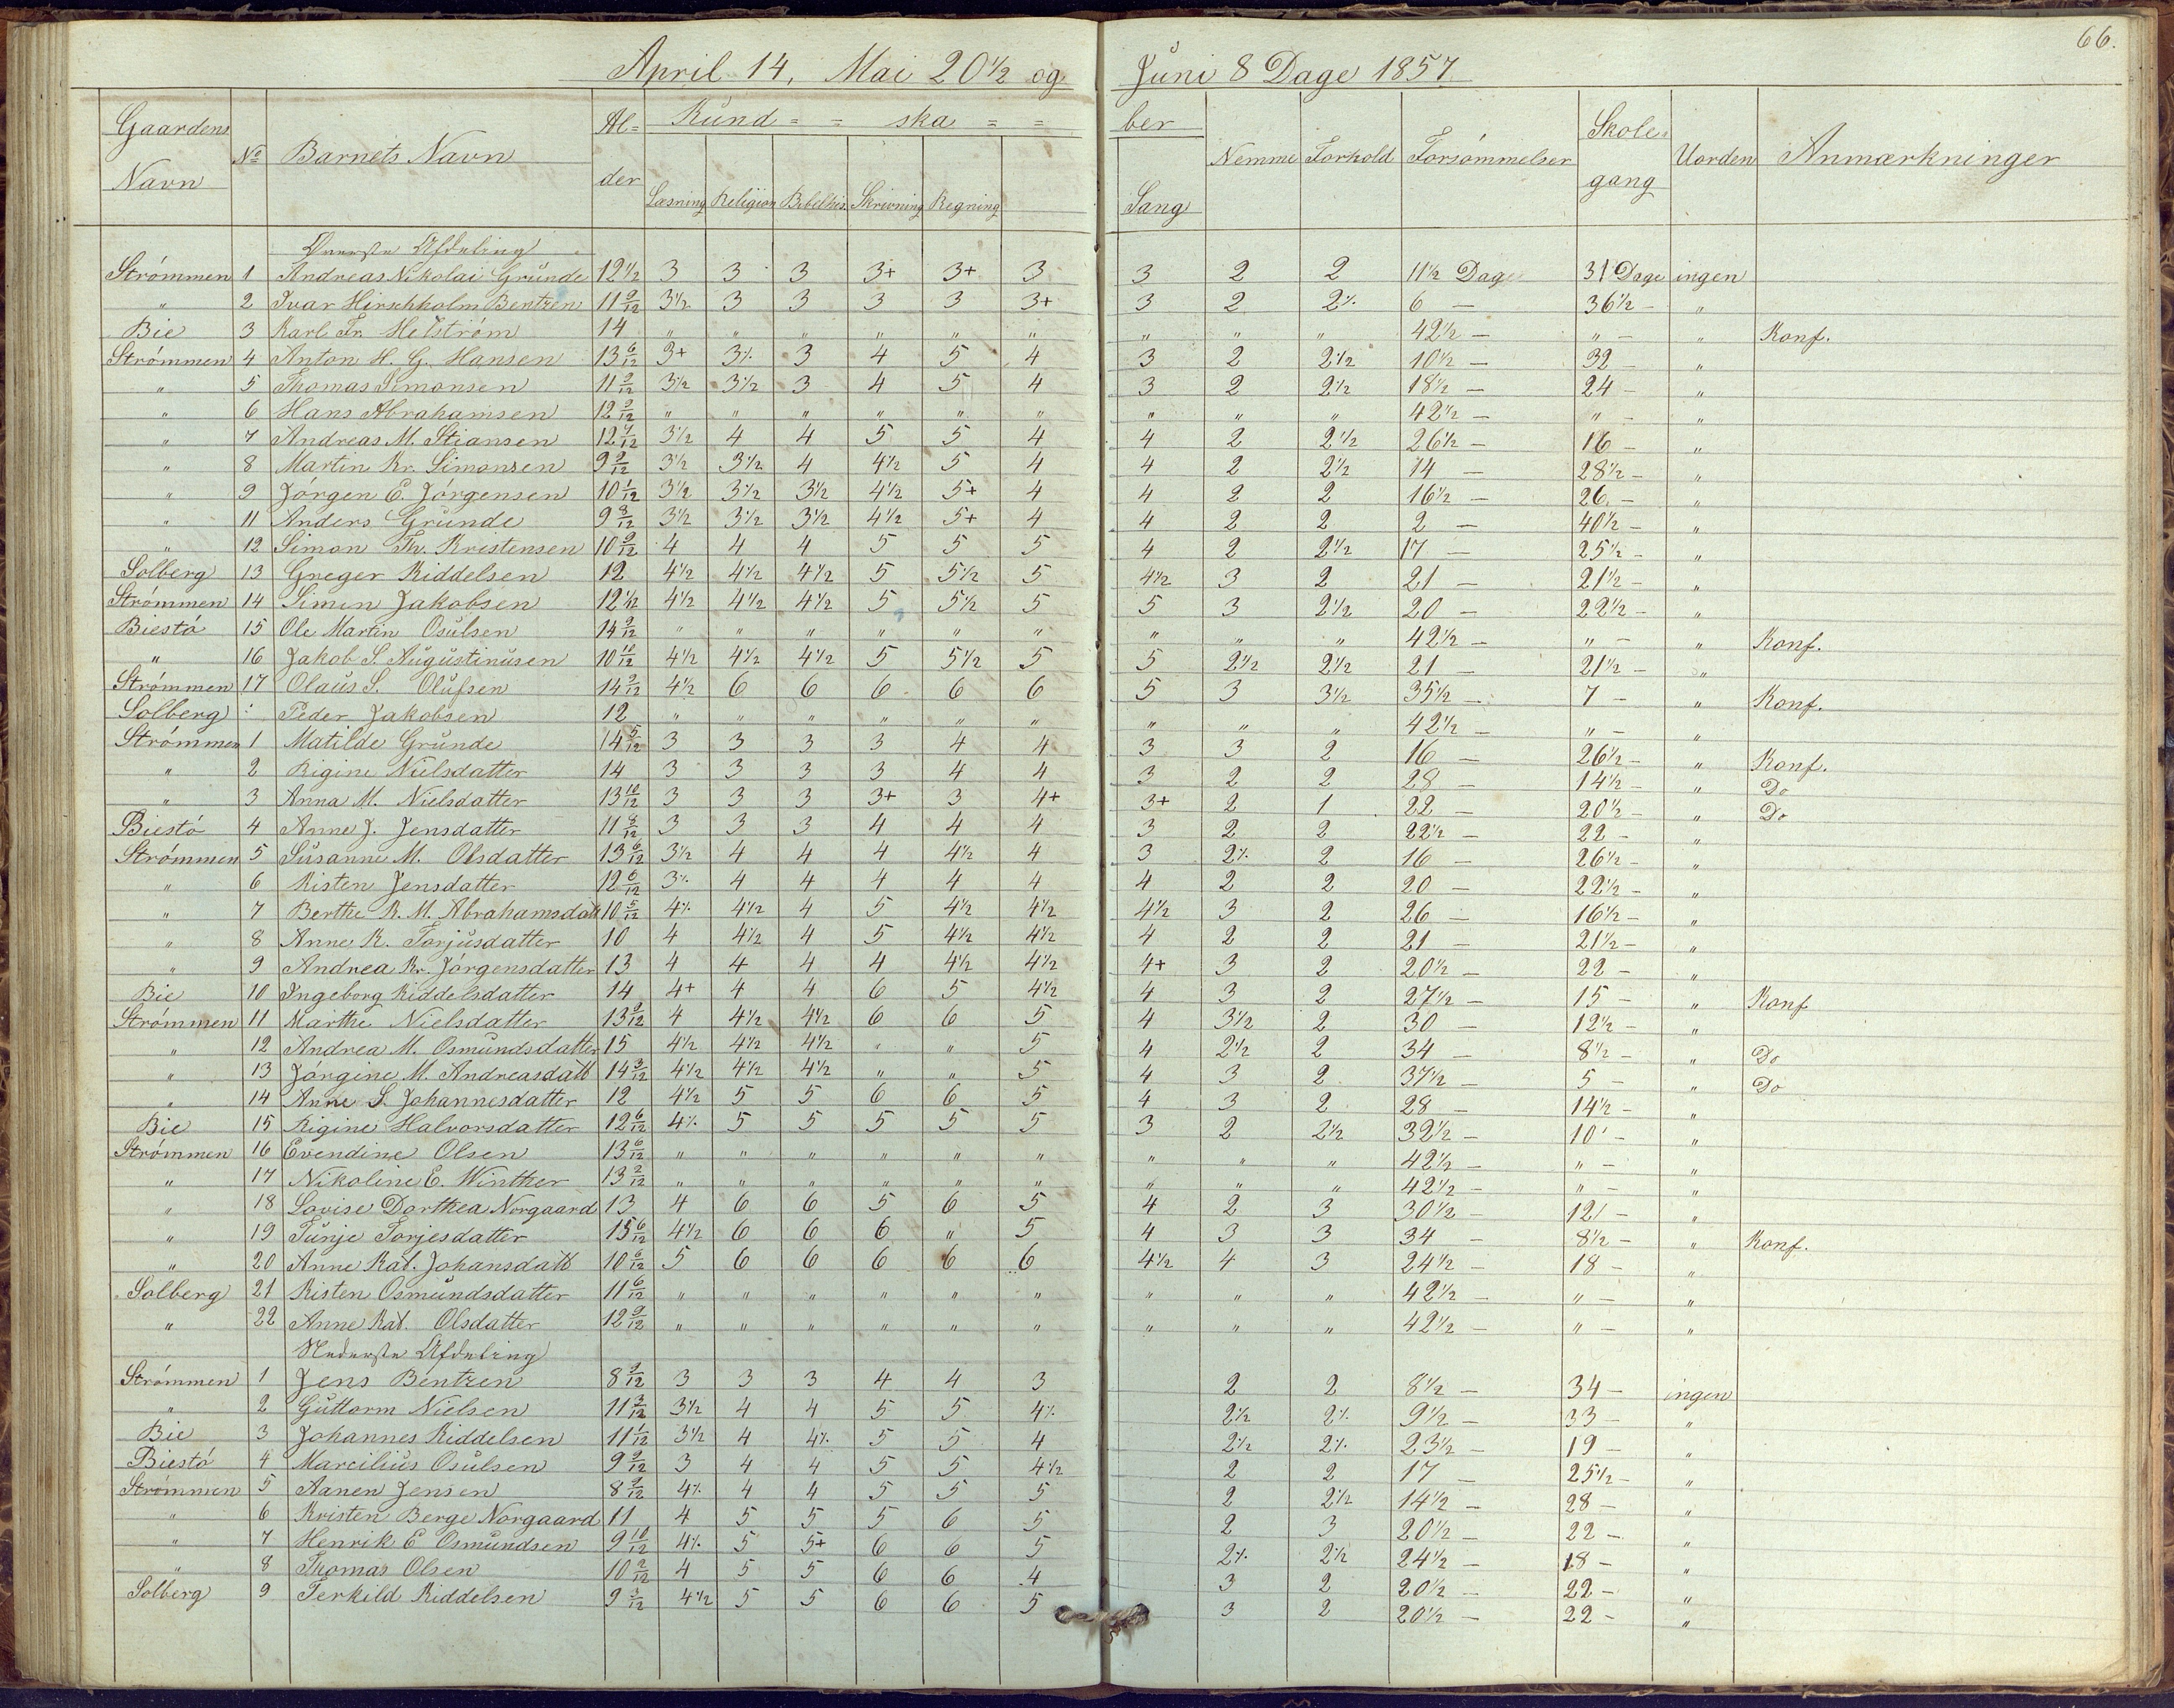 66.
April 14, Mai 20½ og Juni 8 Dage 1857
Gaardens Navn | No | Barnets Navn | Al=der | Kund = = ska = = ber | Nemme | Forhold | Forsömmelser | Skole=gang | Uorden | Anmærkninger
Læsning | Religion | Bibelhis. | Skrivning | Regning | Sang
Överste Afdeling
Strömmen 1 Andreas Nikolai Grunde 12½ 3 3 3 3+ 3+ 3 3 2 2 11½ Dage 31 Dage ingen
" 2 Ivar Hirschholm Bentzen 11 9/12 3½ 3 3 3 3 3+ 3 2 2% 6 — 36½ - "
Bie 3 Karl Fr. Helström 14 " " " " " " " " " 42½ — " - " Konf.
Strömmen 4 Anton H. G. Hansen 13 6/12 3+ 3% 3 4 5 4 3 2 2½ 10½ — 32 - "
" 5 Thomas Simonsen 11 9/12 3½ 3½ 3 4 5 4 3 2 2½ 18½ — 24 - "
" 6 Hans Abrahamsen 12 9/12 " " " " " " " " " 42½ — " - "
" 7 Andreas M. Stiansen 12 7/12 3½ 4 4 5 5 4 4 2 2½ 26½ — 16 - "
" 8 Martin Kr. Simonsen 9 9/12 3½ 3½ 4 4½ 5 4 4 2 2½ 14 — 28½ - "
" 9 Jörgen E. Jörgensen 10 1/12 3½ 3½ 3½ 4½ 5+ 4 4 2 2 16½ — 26 - "
" 11 Anders Grunde 9 8/12 3½ 3½ 3½ 4½ 5+ 4 4 2 2 2 — 40½ - "
" 12 Simon Th. Kristensen 10 9/12 4 4 4 5 5 5 4 2 2½ 17 — 25½ - "
Solberg 13 Greger Kiddelsen 12 4½ 4½ 4½ 5 5½ 5 4½ 3 2 21 — 21½ - "
Strömmen 14 Simen Jakobsen 12 1/12 4½ 4½ 4½ 5 5½ 5 5 3 2½ 20 — 22½ - "
Biestö 15 Ole Martin Osulsen 14 9/12 " " " " " " " " " 42½ — " - " Konf.
" 16 Jakob S. Augustinusen 10 10/12 4½ 4½ 4½ 5 5½ 5 5 2½ 2½ 21 — 21½ - "
Strömmen 17 Olaus S. Olufsen 14 9/12 4½ 6 6 6 6 6 5 3 3½ 35½ — 7 - " Konf.
Solberg : Peder Jakobsen 12 " " " " " " " " " 42½ — " - "
Strömmen 1 Matilde Grunde 14 5/12 3 3 3 3 4 4 3 3 2 16 — 26½ - " Konf.
" 2 Rigine Nielsdatter 14 3 3 3 3 4 4 3 2 2 28 — 14½ - " Do
" 3 Anna M. Nielsdatter 13 10/12 3 3 3 3+ 3 4+ 3+ 2 1 22 — 20½ - " Do
Biestö 4 Anne J. Jensdatter 11 8/12 3 3 3 4 4 4 3 2 2 22½ — 22 - "
Strömmen 5 Susanne M. Olsdatter 13 6/12 3½ 4 4 4 4½ 4 3 2% 2 16 — 26½ - "
" 6 Kisten Jensdatter 12 6/12 3% 4 4 4 4 4 4 2 2 20 — 22½ - "
" 7 Berthe K. M. Abrahamsdatt 10 5/12 4% 4½ 4 5 4½ 4½ 4½ 3 2 26 — 16½ - "
" 8 Anne K. Torjusdatter 10 4 4½ 4 5 4½ 4½ 4 2 2 21 — 21½ - "
" 9 Andrea Kr. Jörgensdatter 13 4 4 4 4 4½ 4½ 4+ 3 2 20½ — 22 - "
Bie 10 Ingeborg Kiddelsdatter 14 4+ 4 4 6 5 4½ 4 3 2 27½ — 15 - " Konf
Strömmen 11 Marthe Nielsdatter 13 9/12 4 4½ 4½ 6 6 5 4 3½ 2 30 — 12½ - "
" 12 Andrea M. Osmundsdatter 15 4½ 4½ 4½ " " 5 4 2½ 2 34 — 8½ - " Do
" 13 Jörgine M. Andreasdatt 14 3/12 4½ 4½ 4½ " " 5 4 3 2 37½ — 5 - " Do
" 14 Anne S. Johannesdatter 12 4½ 5 5 6 6 5 4 3 2 28 — 14½ - "
Bie 15 Rigine Halvorsdatter 12 6/12 4% 5 5 5 5 5 3 2 2½ 32½ — 10 - "
Strömmen 16 Evendine Olsen 13 6/12 " " " " " " " " " 42½ — " - "
" 17 Nikoline E. Winther 13 2/12 " " " " " " " " " 42½ — " - "
" 18 Lovise Dorthea Norgaard 13 4 6 6 5 6 5 4 2 3 30½ — 12 - "
" 19 Tunje Torjesdatter 15 6/12 4½ 6 6 6 " 5 4 3 3 34 — 8½ - " Konf.
" 20 Anne Kat. Johansdatt 10 6/12 5 6 6 6 6 6 4½ 4 3 24½ — 18 - "
Solberg 21 Kisten Osmundsdatter 11 6/12 " " " " " " " " " 42½ — " - "
" 22 Anne Kat. Olsdatter 12 9/12 " " " " " " " " " 42½ — " - "
Nederste Afdeling
Strömmen 1 Jens Bentzen 8 9/12 3 3 3 4 4 3 2 2 8½ — 34 - ingen
" 2 Guttorm Nielsen 11 3/12 3½ 4 4 5 5 4% 2½ 2% 9½ — 33 - "
Bie 3 Johannes Kiddelsen 11 1/12 3½ 4 4% 5 5 4 2½ 2% 23½ — 19 - "
Biestö 4 Marcilius Osulsen 9 9/12 3 4 4 5 5 4½ 2 2 17 — 25½ - "
Strömmen 5 Aanen Jensen 8 9/12 4% 4 4 5 5 5 2 2½ 14½ — 28 - "
" 6 Kristen Berge Norgaard 11 4 5 5 5 6 5 2 3 20½ — 22 - "
" 7 Henrik E Osmundsen 9 10/12 4% 5 5+ 6 6 5 2% 2½ 24½ — 18 - "
" 8 Thomas Olsen 10 2/12 4 5 5 6 6 4 3 2 20½ — 22 - "
Solberg 9 Terkild Kiddelsen 9 3/12 4½ 5 5 6 6 5 3 2 20½ — 22 - "